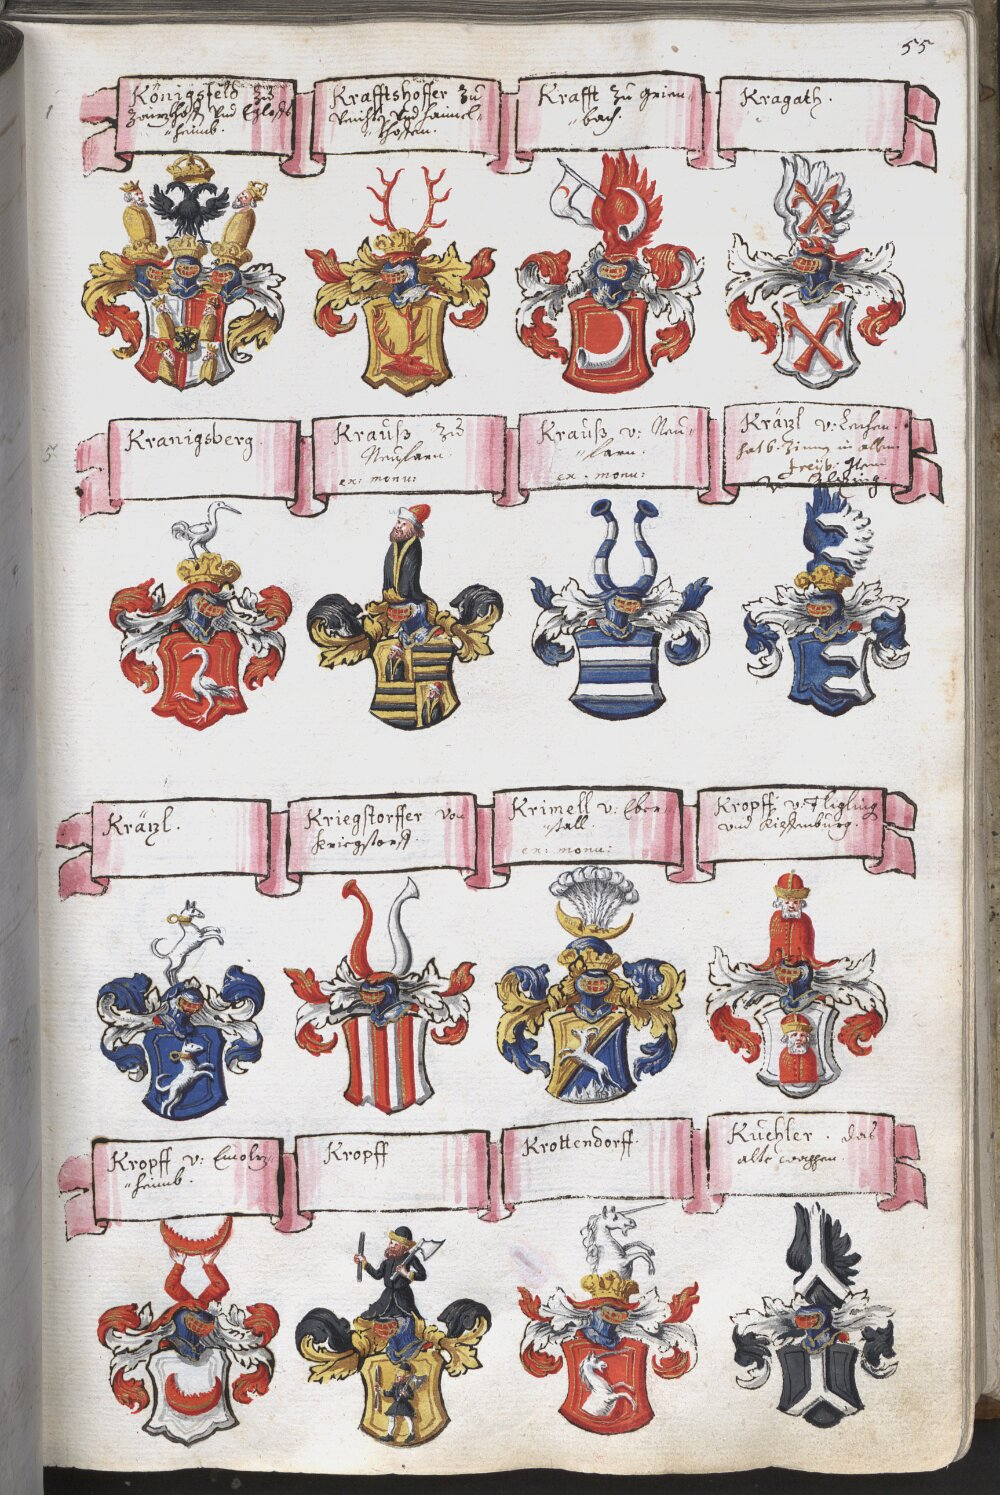 55
1
Königsfeld zu
Zaizkhofen und
heimb.
Krafftshofer zu
und Hannel-
hofen.
Krafft zu Grien-
bach.
Kragath.
5
Kranigsberg.
Krauß zu
Neufarn.
ex: monu:
Krauß v: Neu-
farn.
ex. monu:
Kräzl v:
hat
Kräzl.
Kriegstorffer von
Kriegstorff.
Krimell v: Eber-
stall.
ex: monu:
Kropff: v: Fligling
und Kieffenburg.
Kropff v:
heimb.
Kropff
Krottendorff.
Küchler. das
alte wappen.